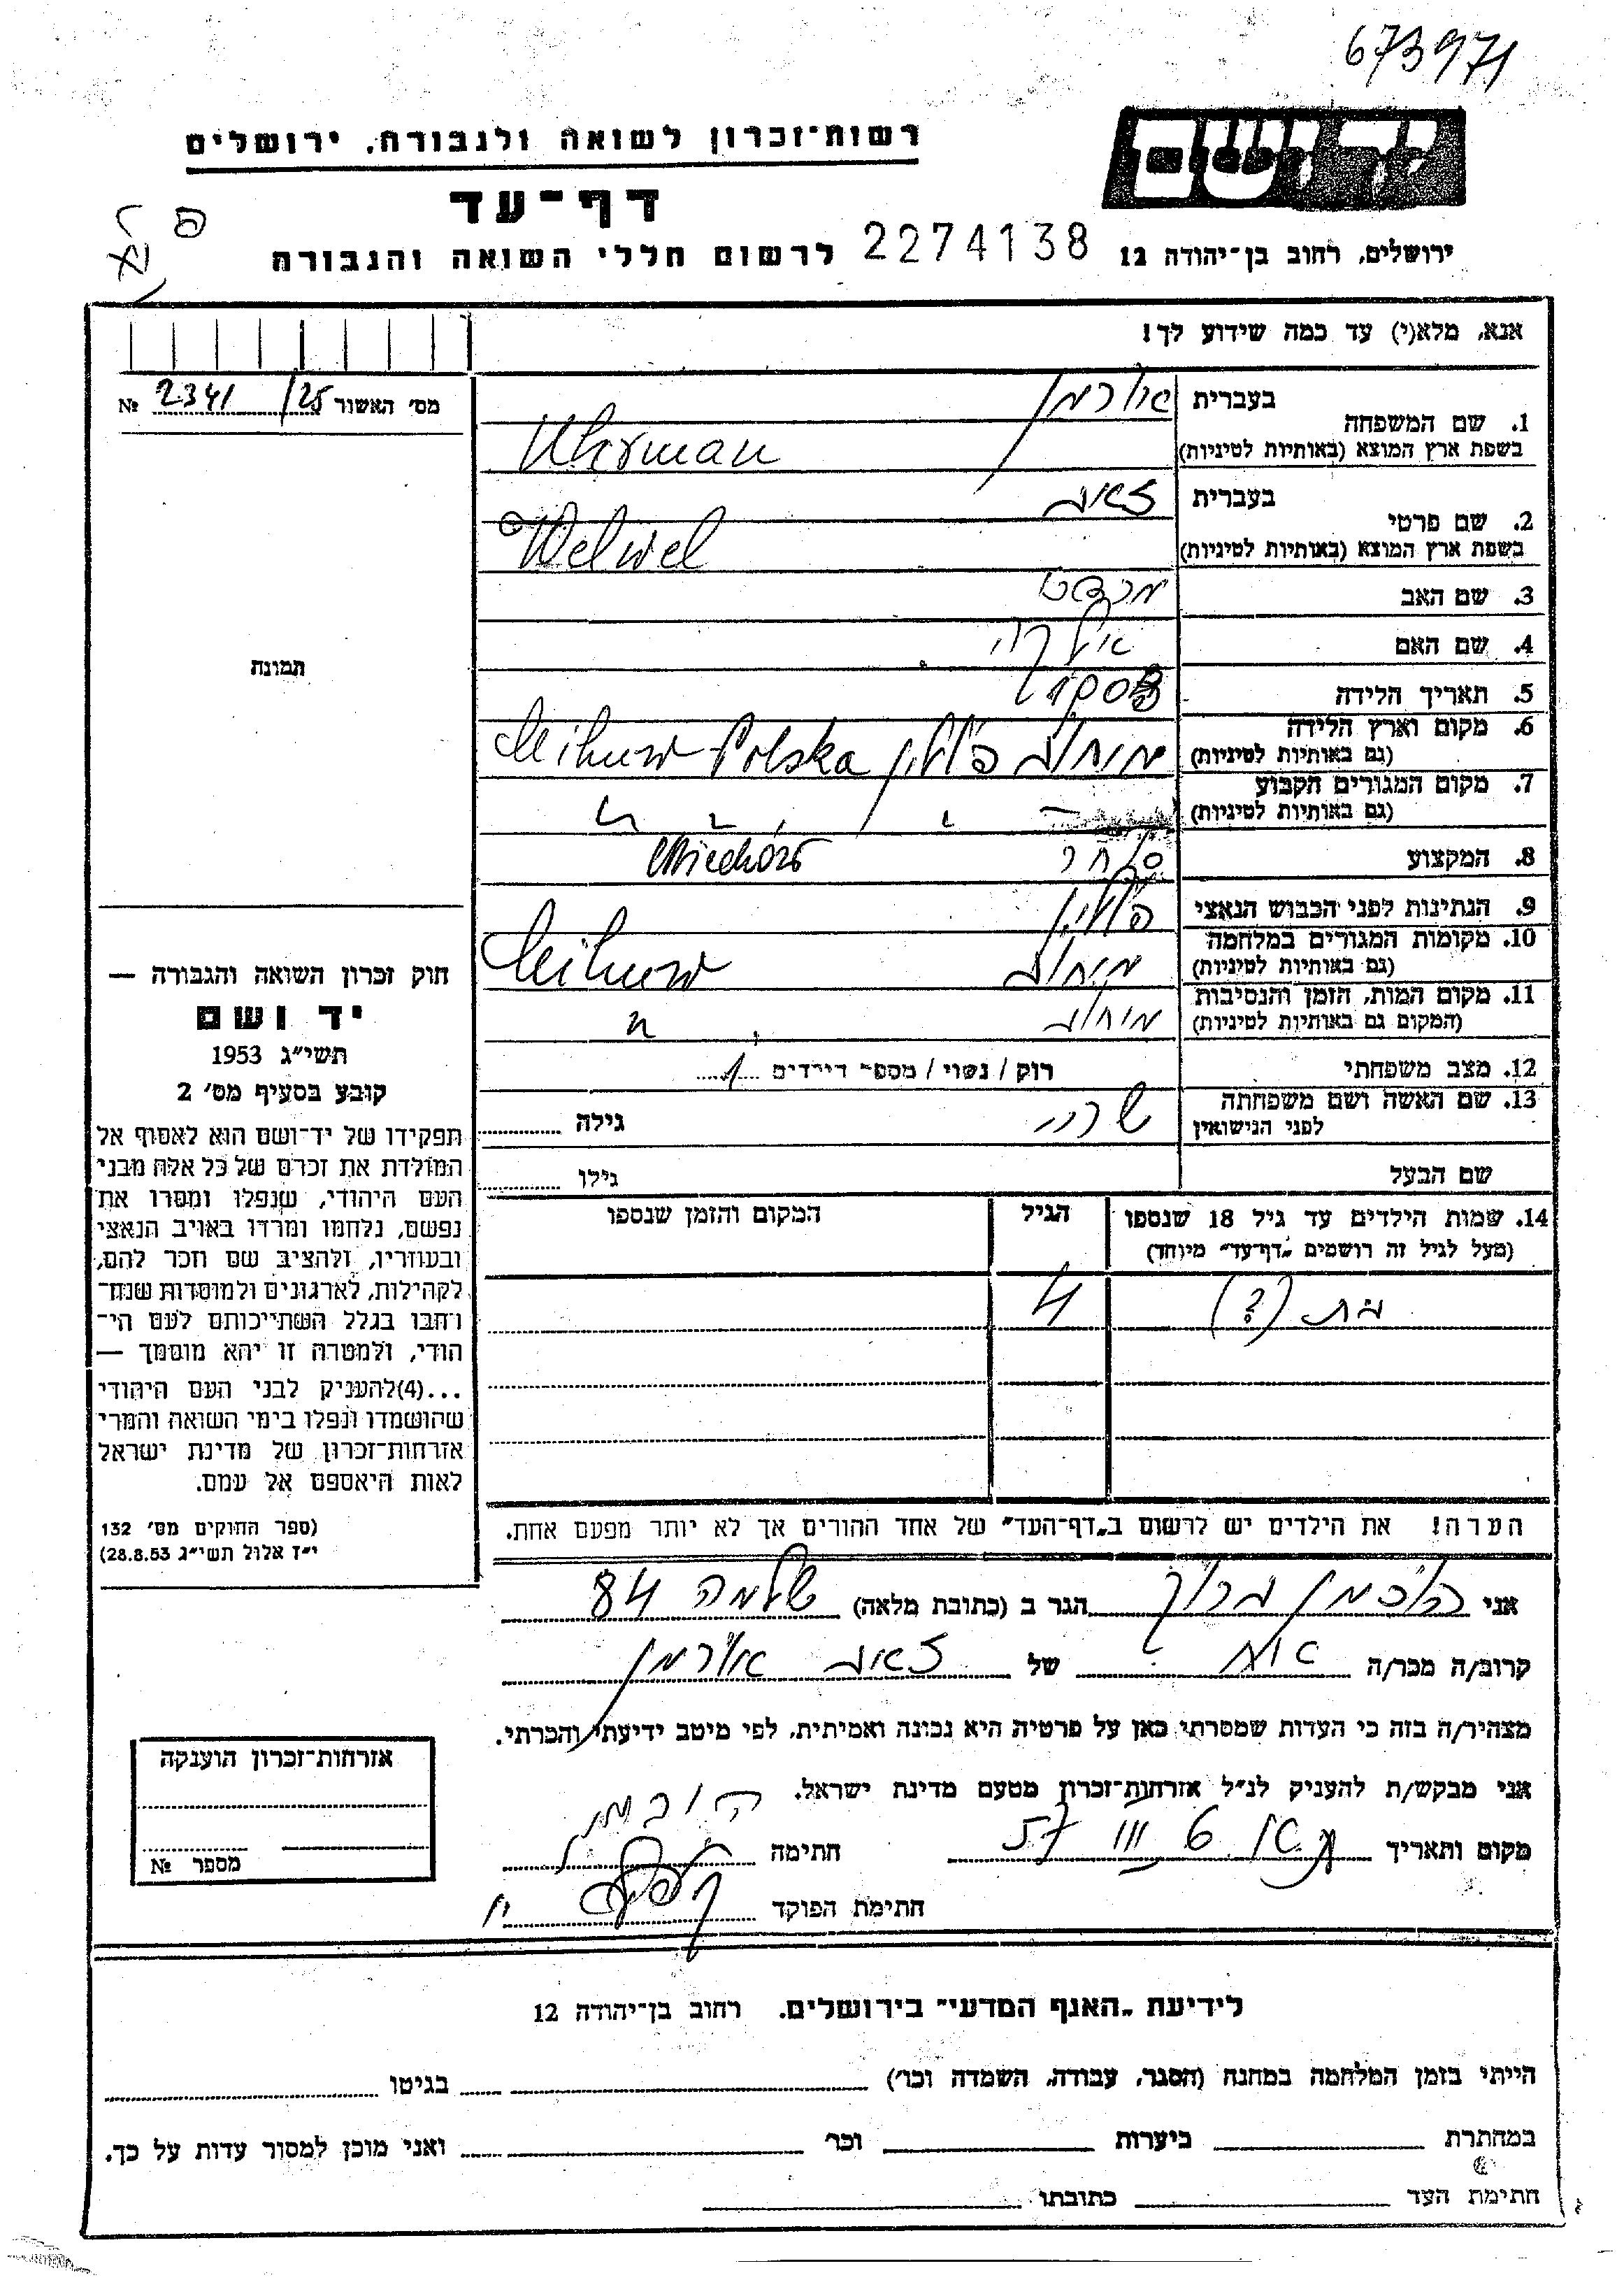 673971
רשות־זכרון לשואה ולגבורה, ירושלים
יד ושם
דף־עד
לרשום חללי השואה והגבורה
2274138
ירושלים, רחוב בן־יהודה 12
אנא, מלא(י) עד כמה שידוע לך!
מס׳ האשור 25/ 2341 №
1. שם המשפחה
בעברית אורמן
בשפת ארץ המוצא (באותיות לטיניות) Uhrman
2. שם פרטי
בעברית זאב
בשפת ארץ המוצא (באותיות לטיניות) Welwel
3. שם האב
4. שם האם
5. תאריך הלידה
6. מקום וארץ הלידה מיחוב פולין Polska
(גם באותיות לטיניות)
7. מקום המגורים הקבוע
(גם באותיות לטיניות)
Miechów
8. המקצוע סוחר
9. הנתינות לפני הכבוש הנאצי פולין
10. מקומות המגורים במלחמה מיחוב
(גם באותיות לטיניות)
11. מקום המות, הזמן והנסיבות מיחוב
(המקום גם באותיות לטיניות)
12. מצב משפחתי רוק / נשוי / מספר הילדים 1
13. שם האשה ושם משפחתה שרה גילה
לפני הנישואין
שם הבעל גילו
14. שמות הילדים עד גיל 18 שנספו הגיל המקום והזמן שנספו
(מעל לגיל זה רושמים „דף־עד״ מיוחד)
בת (?) 4
הערה! את הילדים יש לרשום ב„דף־העד״ של אחד ההורים אך לא יותר מפעם אחת.
תמונה
חוק זכרון השואה והגבורה —
יד ושם
תשי״ג 1953
קובע בסעיף מס׳ 2
תפקידו של יד־ושם הוא לאסוף אל
המולדת את זכרם של כל אלה מבני
העם היהודי, שנפלו ומסרו את
נפשם, נלחמו ומרדו באויב הנאצי
ובעוזריו, ולהציב שם וזכר להם,
לקהילות, לארגונים ולמוסדות שנח־
רבו בגלל השתייכותם לעם הי־
הודי, ולמטרה זו יהא מוסמך —
...(4)להעניק לבני העם היהודי
שהושמדו ונפלו בימי השואה והמרי
אזרחות־זכרון של מדינת ישראל
לאות היאספם אל עמם.
(ספר החוקים מס׳ 132
י״ז אלול תשי״ג 28.8.53)
אני ברוך הגר ב (כתובת מלאה) שלמה 84
קרוב/ה מכר/ה של זאב אורמן
מצהיר/ה בזה כי העדות שמסרתי כאן על פרטיה היא נכונה ואמיתית, לפי מיטב ידיעתי והכרתי.
אני מבקש/ת להעניק לנ״ל אזרחות־זכרון מטעם מדינת ישראל.
מקום ותאריך חתימה
חתימת הפוקד
אזרחות־זכרון הוענקה
מספר №
לידיעת „האגף המדעי״ בירושלים. רחוב בן־יהודה 12
הייתי בזמן המלחמה במחנה (הסגר, עבודה, השמדה וכו׳) בגיטו
במחתרת ביערות וכו׳ ואני מוכן למסור עדות על כך.
חתימת העד כתובתו